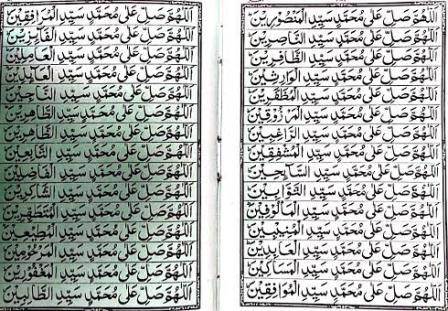 اَللّٰهُمَّ صَلِّ عَلٰى مُحَمَّدٍ سَيِّدِ الْمَنْصُوْرِيْنَ
اَللّٰهُمَّ صَلِّ عَلٰى مُحَمَّدٍ سَيِّدِ النَّاصِرِيْنَ
اَللّٰهُمَّ صَلِّ عَلٰى مُحَمَّدٍ سَيِّدِ الظَّافِرِيْنَ
اَللّٰهُمَّ صَلِّ عَلٰى مُحَمَّدٍ سَيِّدِ الْوَارِثِيْنَ
اَللّٰهُمَّ صَلِّ عَلٰى مُحَمَّدٍ سَيِّدِ الْمُظَفَّرِيْنَ
اَللّٰهُمَّ صَلِّ عَلٰى مُحَمَّدٍ سَيِّدِ الْمَرْزُوْقِيْنَ
اَللّٰهُمَّ صَلِّ عَلٰى مُحَمَّدٍ سَيِّدِ الرَّاغِبِيْنَ
اَللّٰهُمَّ صَلِّ عَلٰى مُحَمَّدٍ سَيِّدِ الْمُشْفِقِيْنَ
اَللّٰهُمَّ صَلِّ عَلٰى مُحَمَّدٍ سَيِّدِ السَّآئِحِيْنَ
اَللّٰهُمَّ صَلِّ عَلٰى مُحَمَّدٍ سَيِّدِ التَّوَّابِيْنَ
اَللّٰهُمَّ صَلِّ عَلٰى مُحَمَّدٍ سَيِّدِ الْمَالُوْفِيْنَ
اَللّٰهُمَّ صَلِّ عَلٰى مُحَمَّدٍ سَيِّدِ الْمُنِيْبِيْنَ
اَللّٰهُمَّ صَلِّ عَلٰى مُحَمَّدٍ سَيِّدِ الْعَابِدِيْنَ
اَللّٰهُمَّ صَلِّ عَلٰى مُحَمَّدٍ سَيِّدِ الْمَسَاكِيْنَ
اَللّٰهُمَّ صَلِّ عَلٰى مُحَمَّدٍ سَيِّدِ الْمُوَافِقِيْنَ
اَللّٰهُمَّ صَلِّ عَلٰى مُحَمَّدٍ سَيِّدِ الْمُرَافِقِيْنَ
اَللّٰهُمَّ صَلِّ عَلٰى مُحَمَّدٍ سَيِّدِ الْفَآئِزِيْنَ
اَللّٰهُمَّ صَلِّ عَلٰى مُحَمَّدٍ سَيِّدِ الْعَامِلِيْنَ
اَللّٰهُمَّ صَلِّ عَلٰى مُحَمَّدٍ سَيِّدِ
اَللّٰهُمَّ صَلِّ عَلٰى مُحَمَّدٍ سَيِّدِ النَّاجِيْنَ
اَللّٰهُمَّ صَلِّ عَلٰى مُحَمَّدٍ سَيِّدِ الطَّاهِرِيْنَ
اَللّٰهُمَّ صَلِّ عَلٰى مُحَمَّدٍ سَيِّدِ الظَّاهِرِيْنَ
اَللّٰهُمَّ صَلِّ عَلٰى مُحَمَّدٍ سَيِّدِ التَّابِعِيْنَ
اَللّٰهُمَّ صَلِّ عَلٰى مُحَمَّدٍ سَيِّدِ الْفَاضِلِيْنَ
اَللّٰهُمَّ صَلِّ عَلٰى مُحَمَّدٍ سَيِّدِ الشَّاكِرِيْنَ
اَللّٰهُمَّ صَلِّ عَلٰى مُحَمَّدٍ سَيِّدِ الْمُتَطَهِّرِيْنَ
اَللّٰهُمَّ صَلِّ عَلٰى مُحَمَّدٍ سَيِّدِ الْمُطِيْعِيْنَ
اَللّٰهُمَّ صَلِّ عَلٰى مُحَمَّدٍ سَيِّدِ الْمَرْحُوْمِيْنَ
اَللّٰهُمَّ صَلِّ عَلٰى مُحَمَّدٍ سَيِّدِ الْمَغْفُوْرِيْنَ
اَللّٰهُمَّ صَلِّ عَلٰى مُحَمَّدٍ سَيِّدِ الطَّالِبِيْنَ